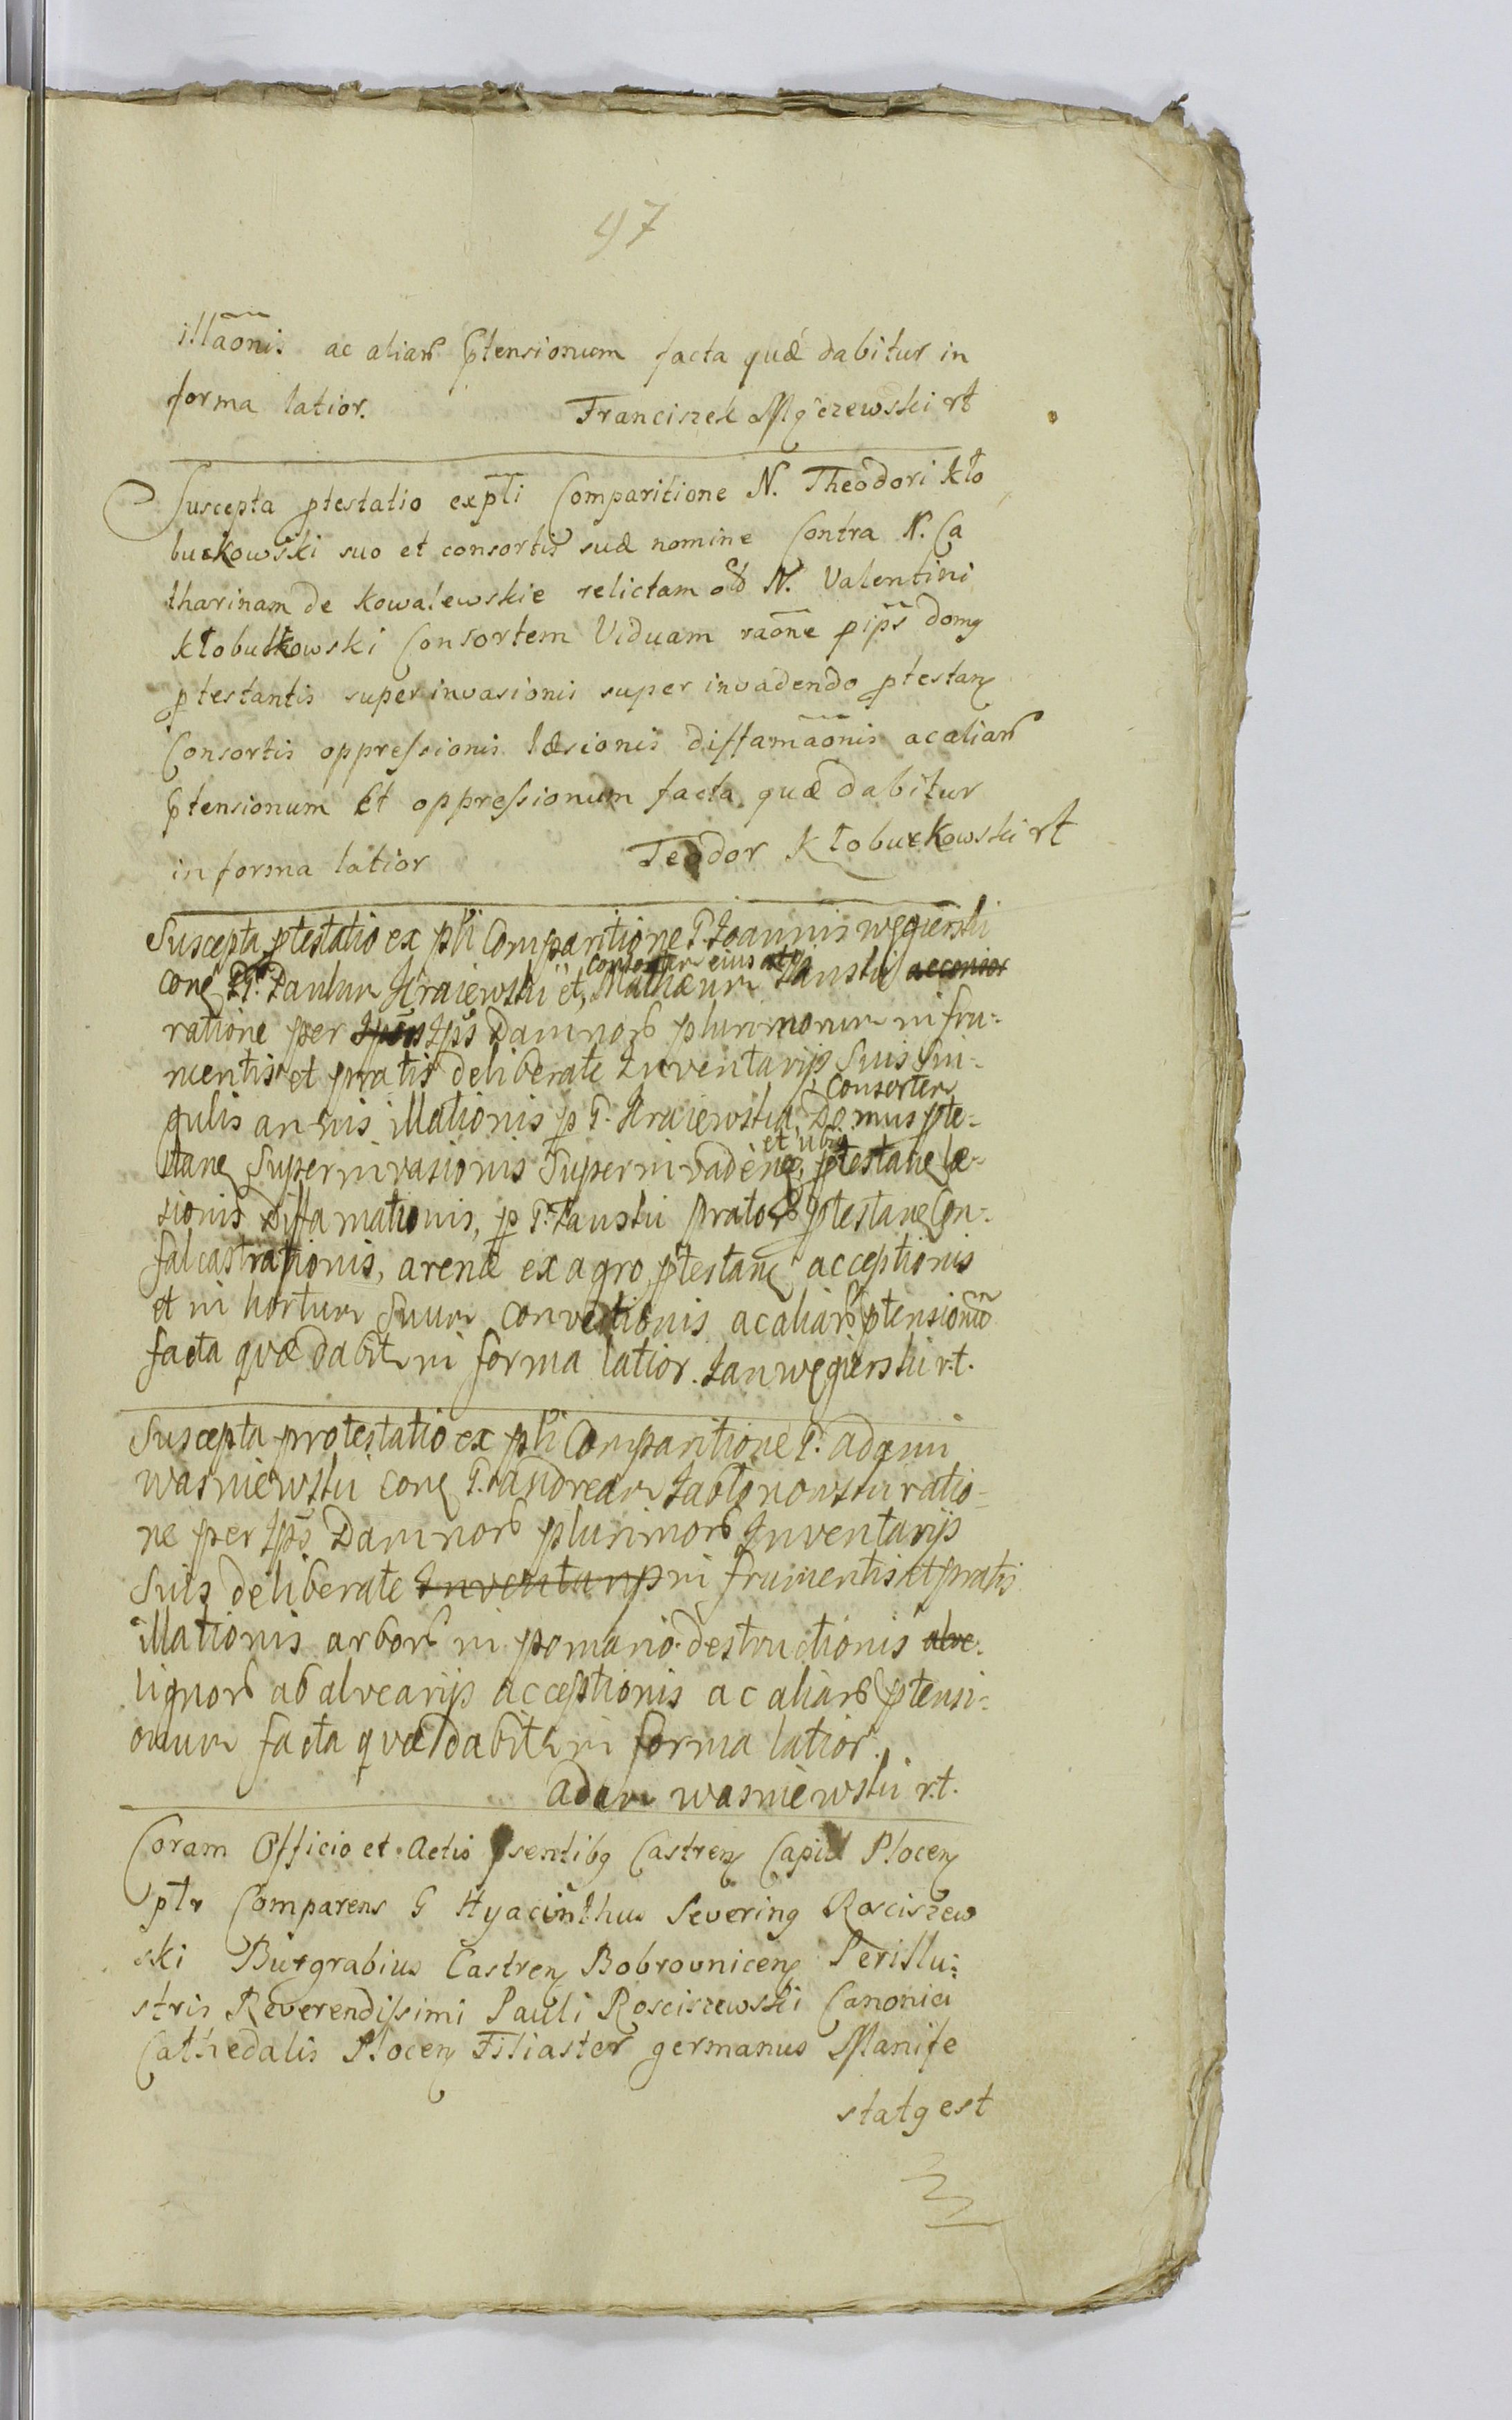 97
illãonis ac aliarũ ptensionum facta quæ dabitur in
forma latior. Franciszek Mączewski rt
Suscepta ptestatio expłi Comparitione N. Theodori Kło
buckowski suo et consortis suæ nomine Contra N. Ca
tharinam de Kowalewskie relictam olb N. Valentini
Kłobutkowski Consortem Viduam raõne p ips domq
ptestantis superinvasionis super invadendo ptestanę
Consortis oppressionis læsionis diffamãonis ac aliarũ
ptensionum Et oppressionum facta quæ dabitur
in forma latior Teodor Kłobuckowski rt
Suscepta ptestatio ex płi Comparitione G. Joannis Węgierski
conę GG. Paulum Kraiewski et, Consortem eius Mathæum Łanski ac consor
ratione per Ipsos Ips Damnorũ plurimorum in fru-
mentis et pratis deliberate Inventarijs Suis Sin-
gulis annis illationis p G. Kraiewski, Consortem Domus pte-
stanę Superinvasionis Superinvadenę, et ubi, ptestanę læ-
sionis Diffamationis, p G. Łanski pratorũ ptestanę Con-
falcastrationis, arenæ ex agro ptestanę acceptionis
et in hortum Suum convectionis ac aliarũ ptensionũ
facta quæ dabitr in forma latior. Jan Węgierski r.t.
Suscepta protestatio ex płi Comparitione G. Adami
Wasniewski conę G. Andream Jabłonowski ratio-
ne per Ips Damnorũ plurimorũ Inventarijs
Suis deliberate Inventarijs in frumentis et pratis
illationis arborũ in pomario destructionis alve-
lignorũ ab alvearijs acceptionis ac aliarũ ptensi-
onum facta quæ dabitr in forma latior.
Adam Wasniewski r.t.
Coram Officio et Actis psentibq Castrenę Capitł Plocenę
płr Comparens G Hyacinthus Severinq Rosciszew
ski Burgrabius Castrenę Bobrovnicenę Perillu:
stris Reverendissimi Pauli Rosciszewski Canonici
Cathedalis Plocenę Filiaster germanus Manife
statq est